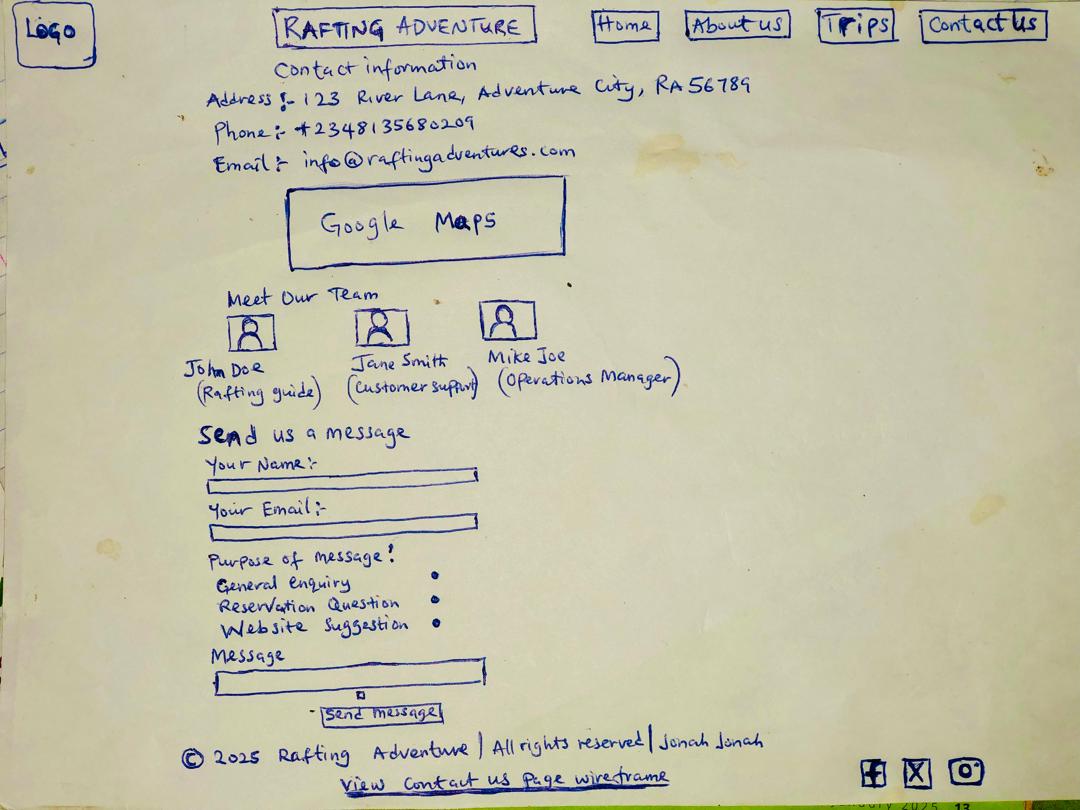 LOGO
RAFTING ADVENTURE
Home
About us
Trips
Contact Us
Contact information
Address :- 123 River Lane, Adventure City, RA 56789
Phone :- +2348135680209
Email :- info@raftingadventures.com
Google Maps
Meet Our Team
John Doe
Jane Smith
Mike Joe
(Rafting guide)
(Customer support)
(Operations Manager)
Send us a message
Your Name:-
Your Email:-
Purpose of message:
General enquiry
Reservation Question
Website Suggestion
Message
Send message
© 2025 Rafting Adventure | All rights reserved | Jonah Jonah
View Contact us Page wireframe
f X
January 2025 13